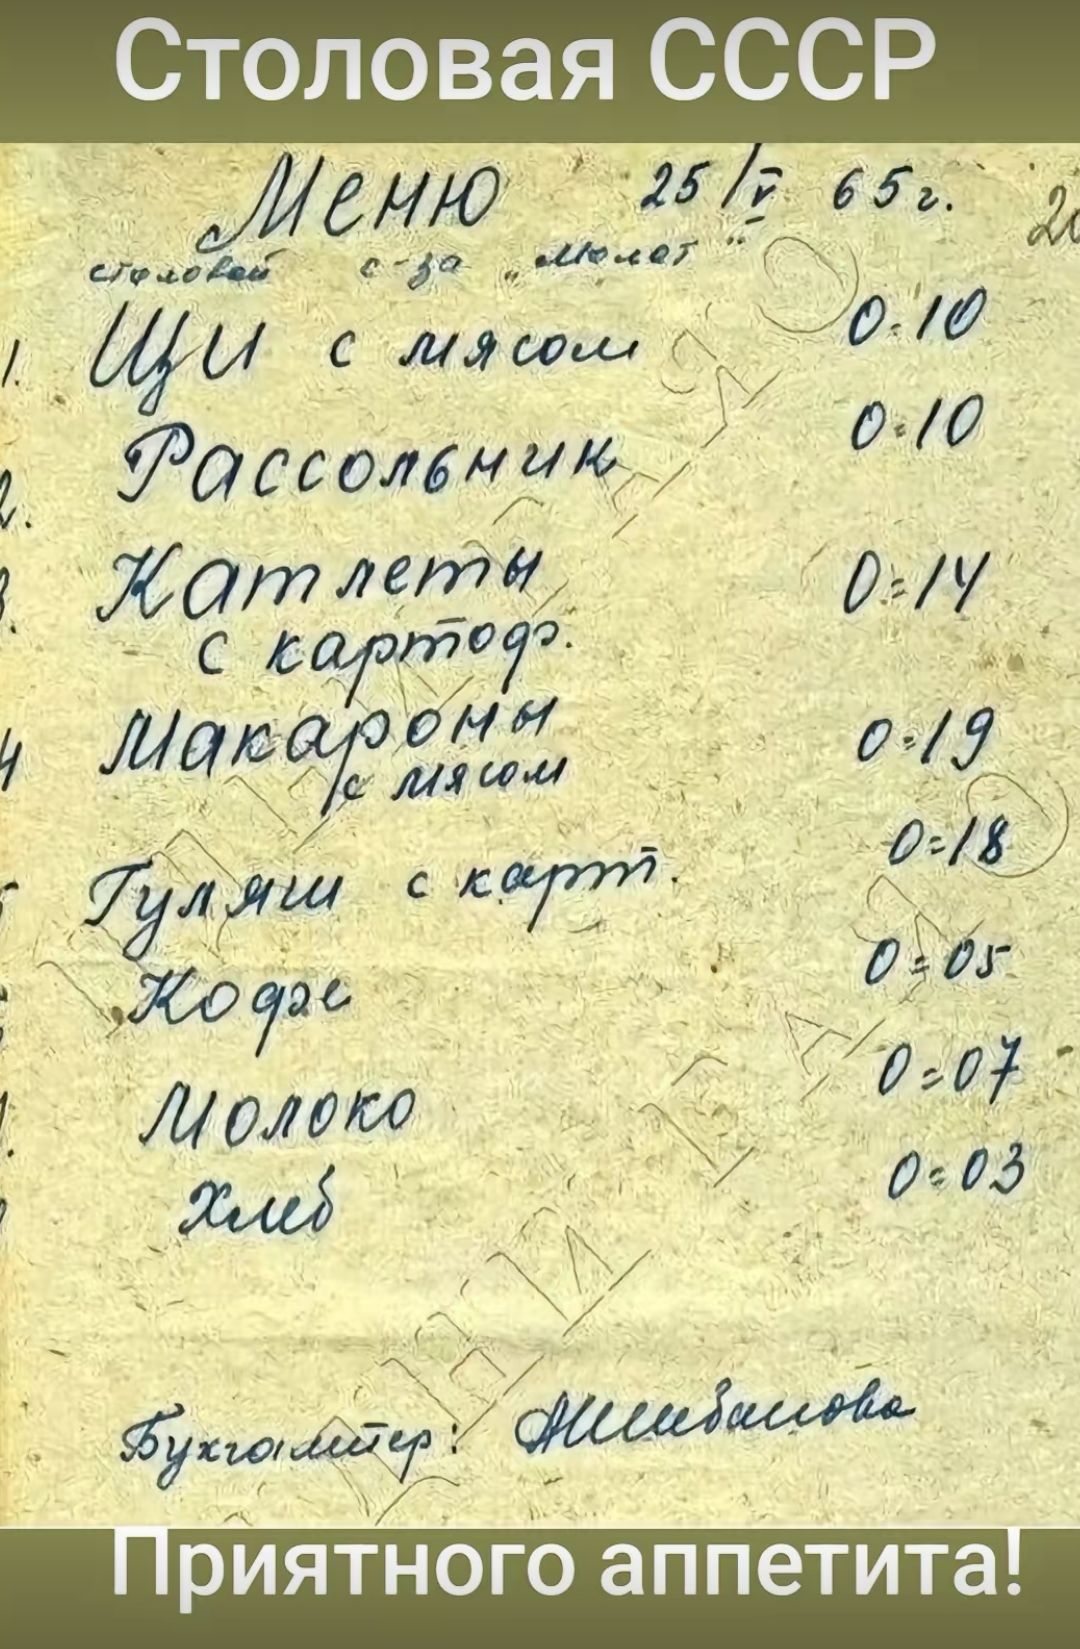 Столовая СССР
Меню 25/V 65г.
столовой с-за „Молот"
1. Щи с мясом 0=10
2. Рассольник 0=10
3. Катлеты 0=14
с картоф.
4 Макароны 0=19
с мясом
Гуляш с карт. 0=18
Кофе 0=05
Молоко 0=07
Хлеб 0=03
Бухгалтер: АШибанова
Приятного аппетита!